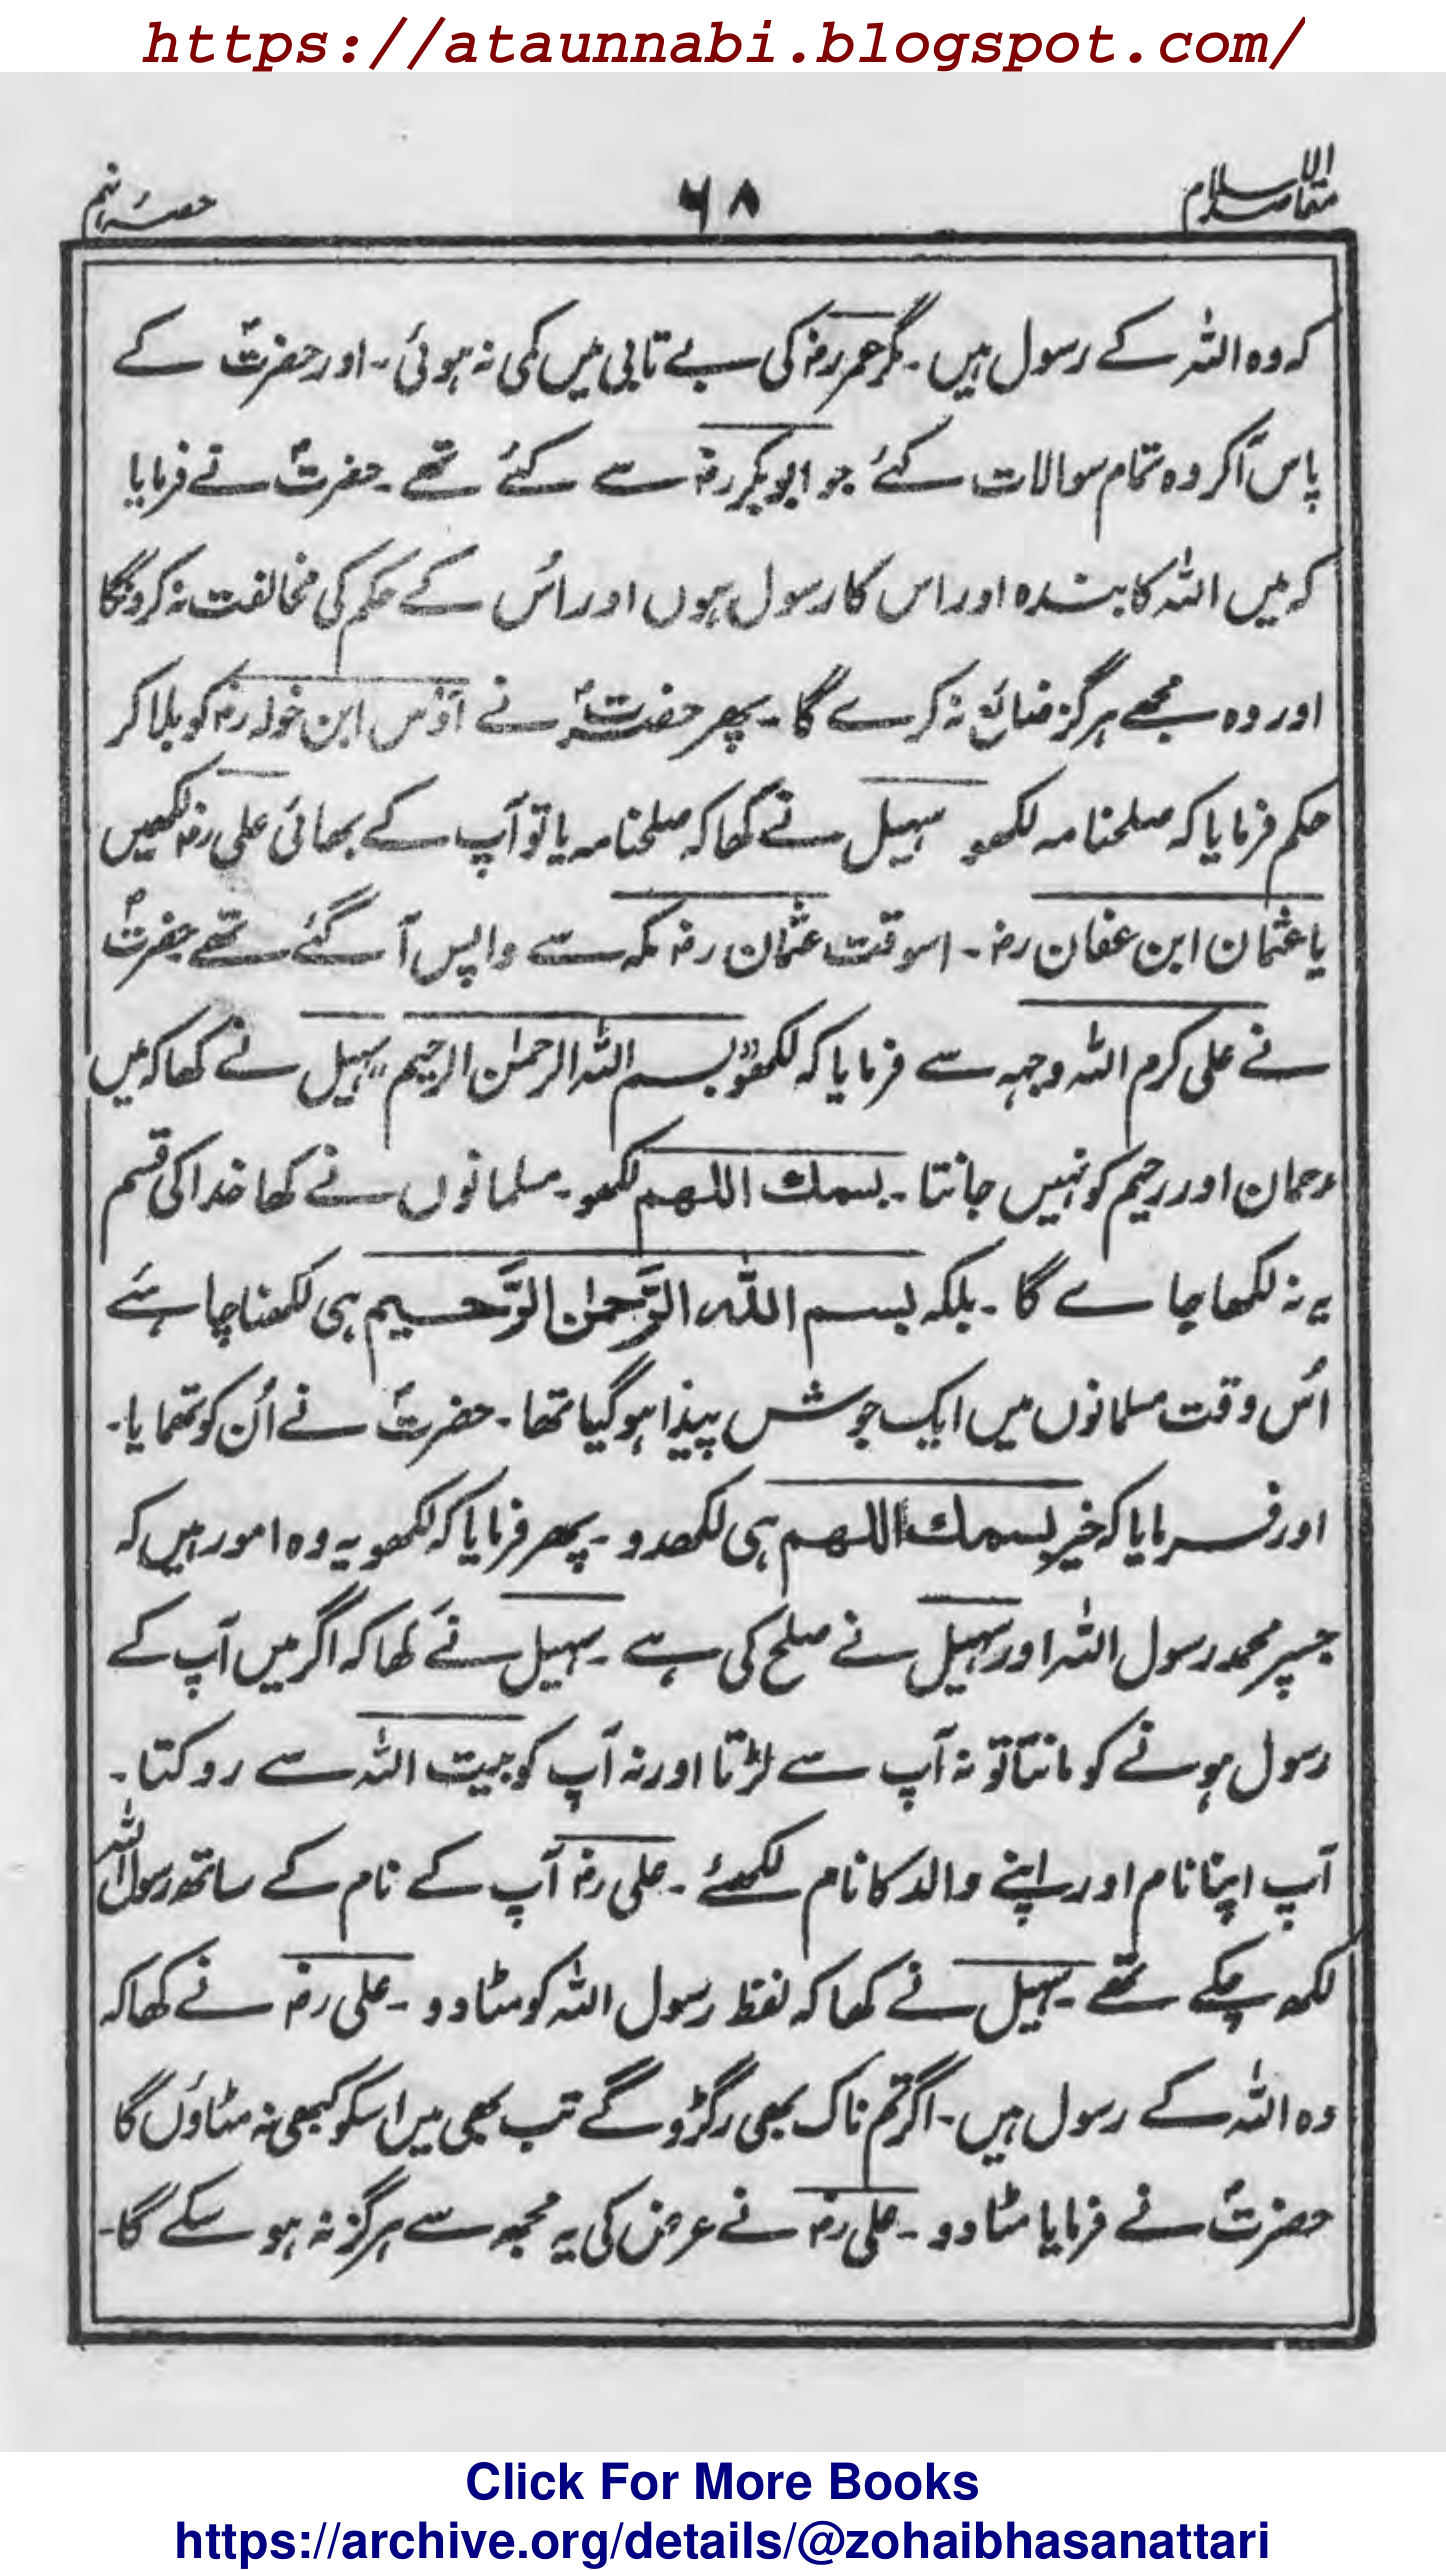 https://ataunnabi.blogspot.com/
مقاصد الاسلام ۶۸ حصہ نہم
کہ وہ اللہ کے رسول ہیں۔ مگر عمر رضہ کی بے تابی میں کمی نہ ہوئی۔ اور حضرتؐ کے
پاس آکر وہ تمام سوالات کئے جو ابوبکر رضہ سے کئے تھے۔ حضرتؐ نے فرمایا
کہ میں اللہ کا بندہ اور اس کا رسول ہوں اور اُس کے حکم کی مخالفت نہ کرونگا
اور وہ مجھے ہرگز ضائع نہ کرے گا۔ پھر حضرتؐ نے اَوْس ابن خولہ رضہ کو بلا کر
حکم فرمایا کہ صلحنامہ لکھو سہیل نے کھا کہ صلحنامہ یا تو آپ کے بھائی علی رضہ لکھیں
یا عثمان ابن عفان رضہ۔ اسوقت عثمان رضہ مکہ سے واپس آ گئے تھے حضرتؐ
نے علی کرم اللہ وجہہ سے فرمایا کہ لکھو ”بسم اللہ الرحمٰن الرحیم“ سہیل نے کھا کہ میں
رحمان اور رحیم کو نہیں جانتا۔ بسمك اللهم لکھو۔ مسلمانوں نے کھا خدا کی قسم
یہ نہ لکھا جاے گا۔ بلکہ بسم اللہ الرَّحمٰن الرَّحیم ہی لکھنا چاہئے
اُس وقت مسلمانوں میں ایک جوش پیدا ہو گیا تھا۔ حضرتؐ نے اُن کو تھمایا۔
اور فرمایا کہ خیر بسمك اللهم ہی لکھدو۔ پھر فرمایا کہ لکھو یہ وہ امور ہیں کہ
جسپر محمد رسول اللہ اور سہیل نے صلح کی ہے۔ سہیل نے کھا کہ اگر میں آپ کے
رسول ہونے کو مانتا تو نہ آپ سے لڑتا اور نہ آپ کو بیت اللہ سے روکتا۔
آپ اپنا نام اور اپنے والد کا نام لکھئے۔ علی رضہ آپ کے نام کے ساتھ رسول اللہ
لکھ چکے تھے۔ سہیل نے کھا کہ لفظ رسول اللہ کو مٹا دو۔ علی رضہ نے کھا کہ
وہ اللہ کے رسول ہیں۔ اگر تم ناک بھی رگڑو گے تب بھی میں اسکو کبھی نہ مٹاؤں گا
حضرتؐ نے فرمایا مٹا دو۔ علی رضہ نے عرض کی یہ مجھ سے ہرگز نہ ہو سکے گا۔
Click For More Books
https://archive.org/details/@zohaibhasanattari